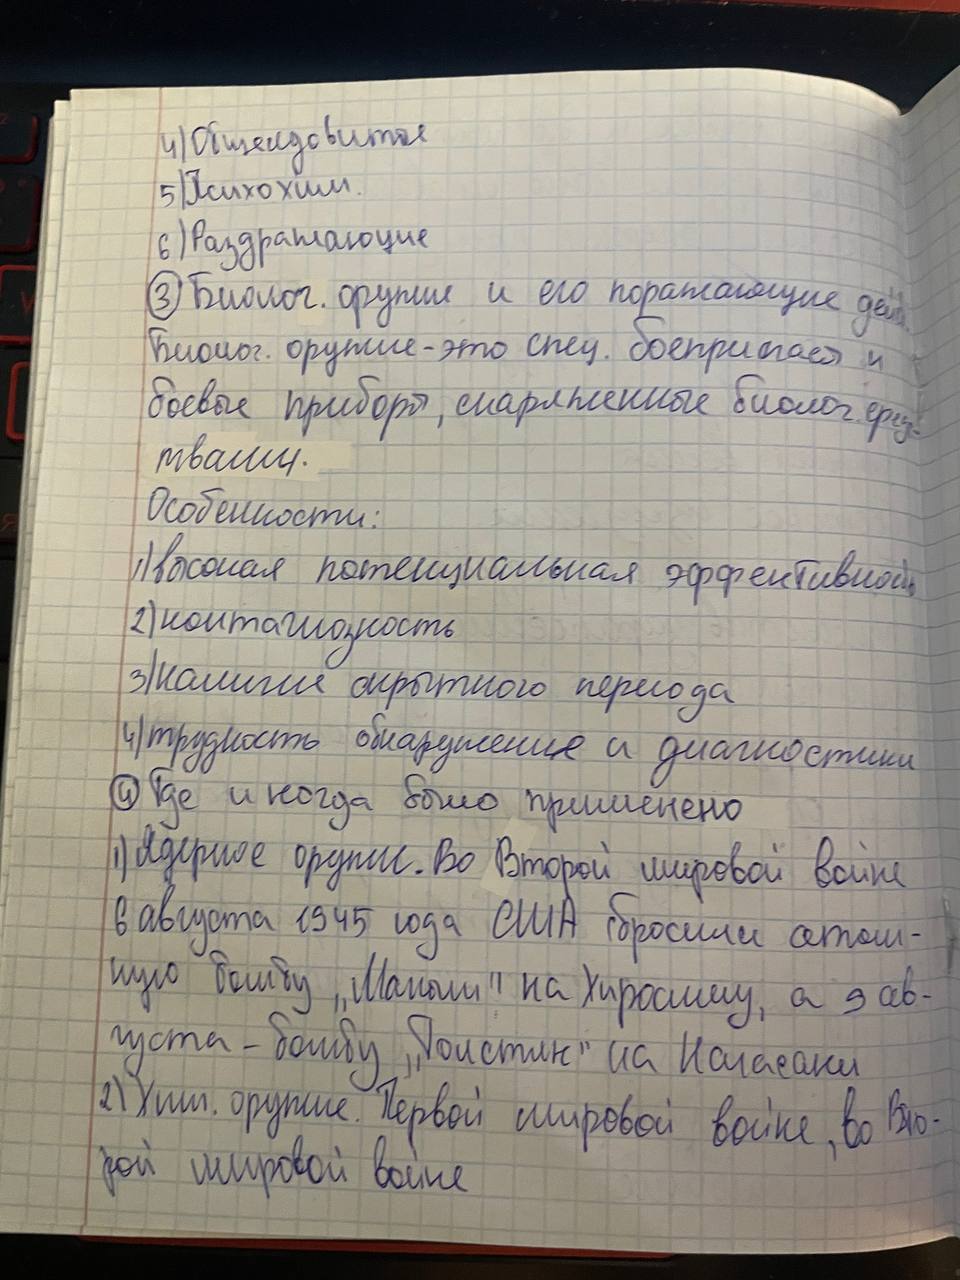 4) Общеядовитые
5) Психохим.
6) Раздражающие
③ Биолог. оружие и его поражающие дейс.
Биолог. оружие - это спец. боеприпасы и
боевые приборы, снаряженные биолог. сред-
твами.
Особенности:
1) высокая потенциальная эффективность
2) контагиозность
3) наличие скрытного периода
4) трудность обнаружения и диагностики
④ Где и когда было применено
1) Ядерное оружие. Во Второй мировой войне
6 августа 1945 года США сбросили атом-
ную бомбу „Малыш" на Хиросиму, а 9 ав-
густа - бомбу „Толстяк" на Нагасаки
2) Хим. оружие. Первой мировой войне, во Вто-
рой мировой войне